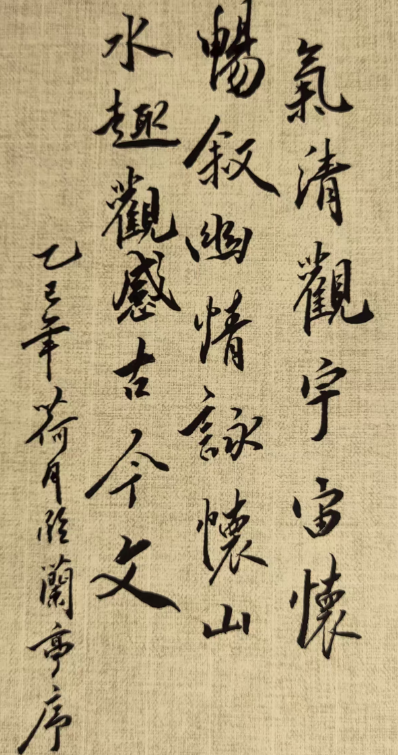 氣清觀宇宙懷
暢叙幽情詠懷山
水趣觀感古今文
乙巳年荷月臨蘭亭序